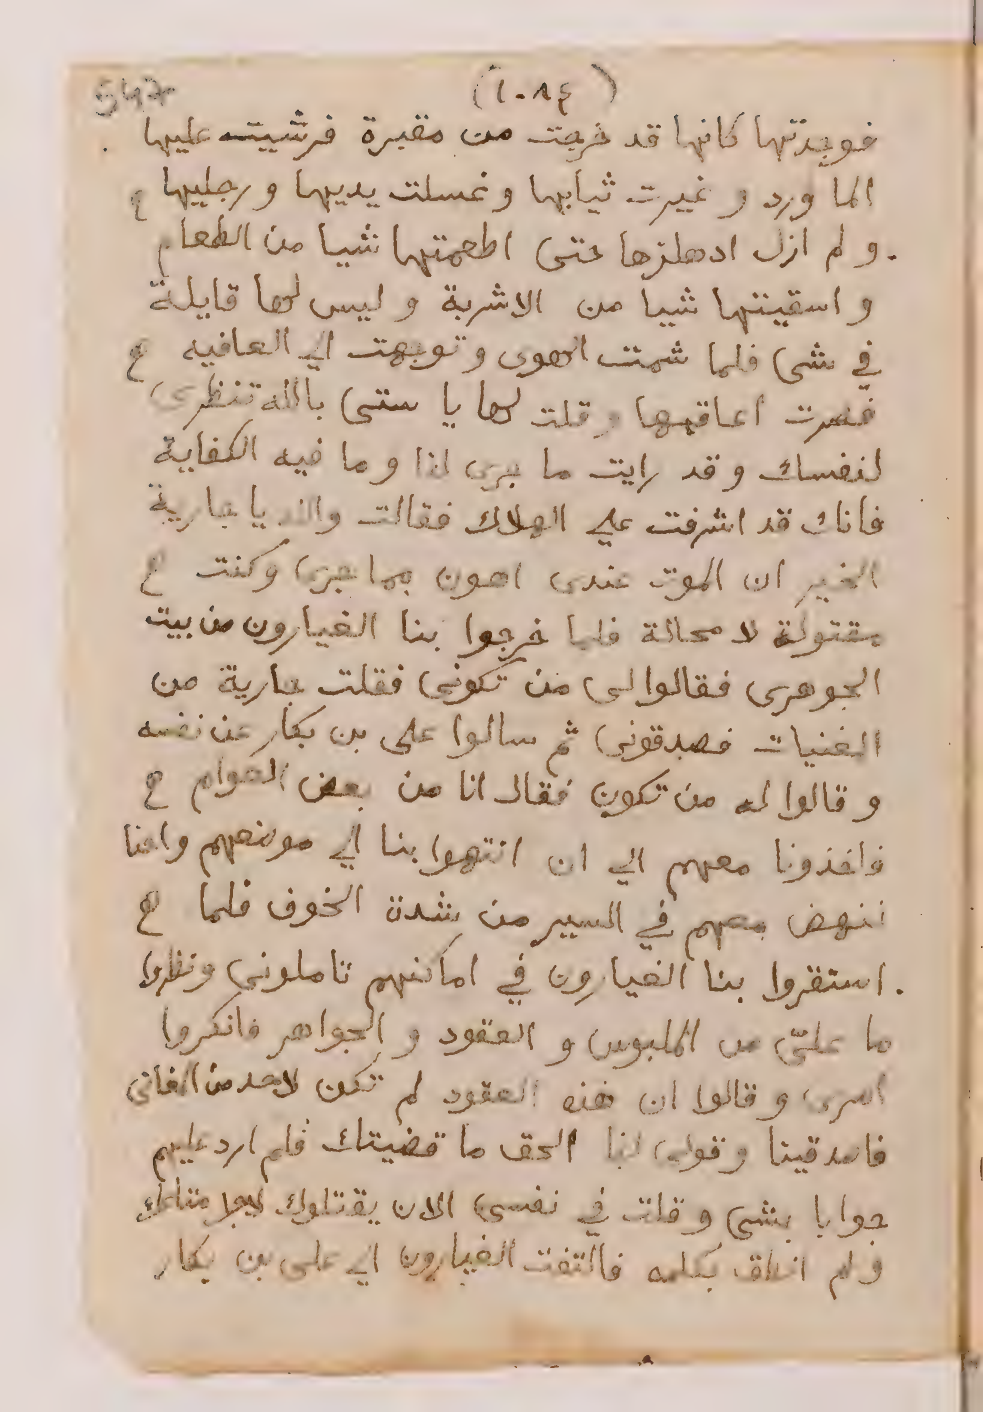 547
(١٠٨٤)
فوجدتها كانها قد خرجت من مقبرة فرشيت عليها
الما ورد و غيرت ثيابها وغسلت يديها ورجليها
ولم ازل ادهلزها حتى اطعمتها شيا من الطعام
و اسقيتها شيا من الاشربة و ليس لها قايلة
في شى فلما شمت الهوى و توجهت الي العافيه
فصرت اعاقبها وقلت لها يا ستى بالله تنظرى
لنفسك و قد رايت ما جرى لنا و ما فيه الكفاية
فانك قد اشرفت علي الهلاك فقالت والله يا جارية
الخير ان الموت عندى اهون مما جرى وكنت
مقتولة لا محالة فلما خرجوا بنا الغيارون من بيت
الجوهرى فقالوا لى من تكونى فقلت جارية من
المغنيات فصدقونى ثم سالوا على بن بكار عن نفسه
و قالوا له من تكون فقال انا من بعض العوام
فاخذونا معهم الي ان انتهوا بنا الي موضعهم واحنا
ننهض معهم في السير من شدة الخوف فلما
استقروا بنا الغيارون في اماكنهم تاملونى ونظروا
ما علىّ من الملبوس و العقود و الجواهر فانكروا
امرى و قالوا ان هذه العقود لم تكن لاحد من المغانى
فاصدقينا و قولى لنا الحق ما قضيتك فلم ارد عليهم
جوابا بشى و قلت في نفسى الان يقتلوك
ولم انطق بكلمه فالتفت الغيارون الي على بن بكار